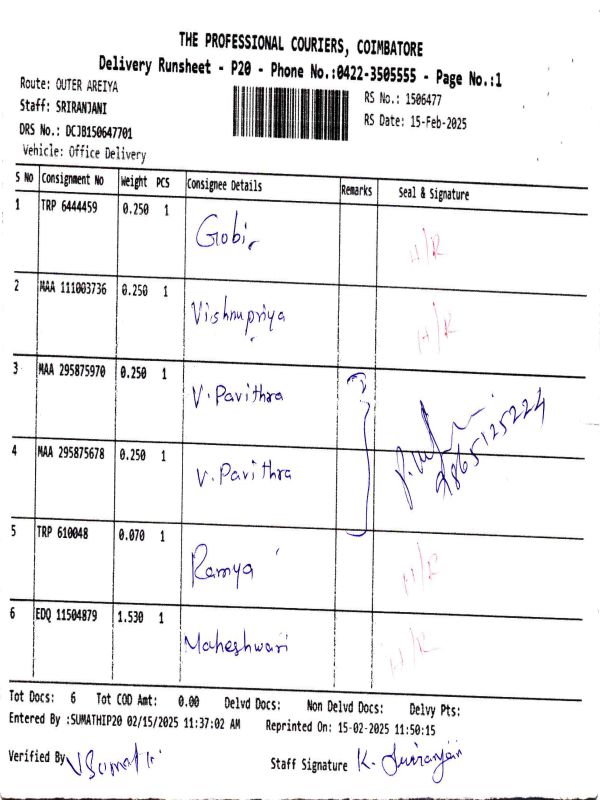 THE PROFESSIONAL COURIERS, COIMBATORE
Delivery Runsheet - P20 - Phone No.:0422-3505555 - Page No.:1
Route: OUTER AREIYA
RS No.: 1506477
Staff: SRIRANJANI
RS Date: 15-Feb-2025
DRS No.: DCJB150647701
Vehicle: Office Delivery
S No Consignment No Weight PCS Consignee Details Remarks Seal & Signature
1 TRP 6444459 0.250 1 Gobi H/R
2 MAA 111003736 0.250 1 Vishnupriya H/R
3 MAA 295875970 0.250 1 V. Pavithra
9865125224
4 MAA 295875678 0.250 1 V. Pavithra
5 TRP 610048 0.070 1 Ramya H/R
6 EDQ 11504879 1.530 1 Maheshwari H/R
Tot Docs: 6 Tot COD Amt: 0.00 Delvd Docs: Non Delvd Docs: Delvy Pts:
Entered By :SUMATHIP20 02/15/2025 11:37:02 AM Reprinted On: 15-02-2025 11:50:15
Verified By V Sumathi Staff Signature K. Sriranjani